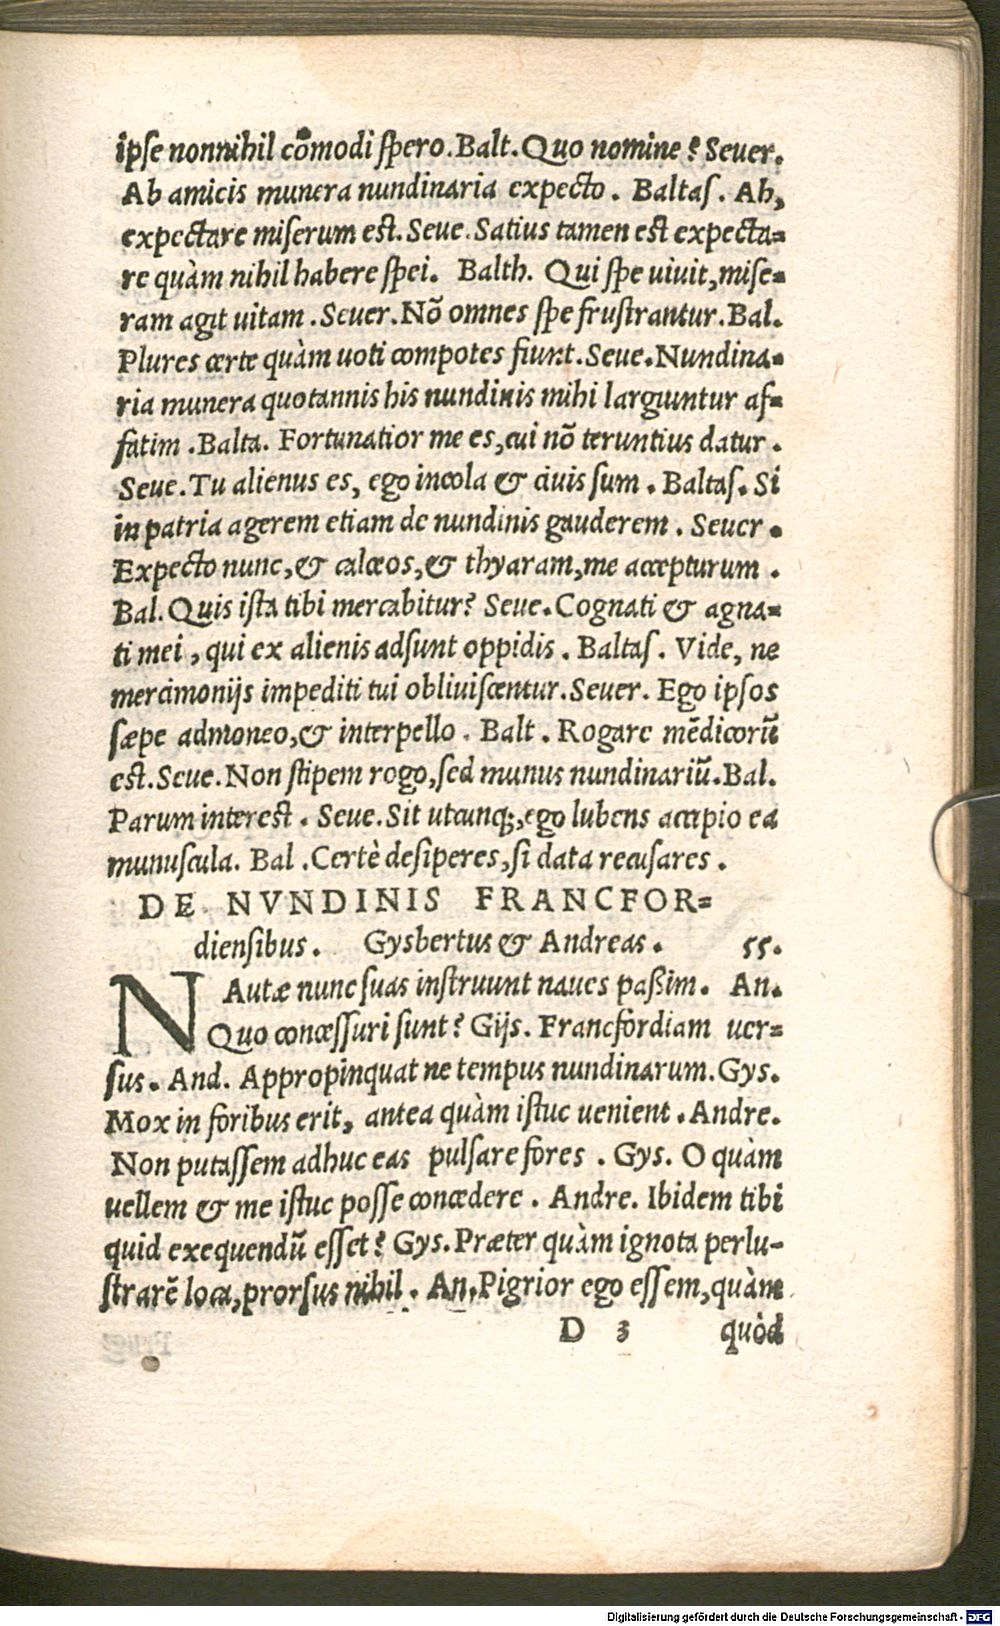 ipse nonnihil cōmodi spero. Balt. Quo nomine? Seuer.
Ab amicis munera nundinaria expecto. Baltas. Ah,
expectare miserum est. Seue. Satius tamen est expecta=
re quàm nihil habere spei. Balth. Qui spe uiuit, mise=
ram agit uitam. Seuer. Nō omnes spe frustrantur. Bal.
Plures certe quàm uoti compotes fiunt. Seue. Nundina=
ria munera quotannis his nundinis mihi largiuntur af=
fatim. Balta. Fortunatior me es, cui nō teruntius datur.
Seue. Tu alienus es, ego incola & ciuis sum. Baltas. Si
in patria agerem etiam de nundinis gauderem. Seuer.
Expecto nunc, & calceos, & thyaram, me accepturum.
Bal. Quis ista tibi mercabitur? Seue. Cognati & agna=
ti mei, qui ex alienis adsunt oppidis. Baltas. Vide, ne
mercimonijs impediti tui obliuiscentur. Seuer. Ego ipsos
sæpe admoneo, & interpello. Balt. Rogare mēdicorū
est. Seue. Non stipem rogo, sed munus nundinariū. Bal.
Parum interest. Seue. Sit utcunq;, ego lubens accipio ea
munuscula. Bal. Certè desiperes, si data recusares.
DE NVNDINIS FRANCFOR=
diensibus. Gysbertus & Andreas. 55.
NAutæ nunc suas instruunt naues paßim. An.
Quo concessuri sunt? Gijs. Francfordiam uer=
sus. And. Appropinquat ne tempus nundinarum. Gys.
Mox in foribus erit, antea quàm istuc uenient. Andre.
Non putassem adhuc eas pulsare fores. Gys. O quàm
uellem & me istuc posse concedere. Andre. Ibidem tibi
quid exequendū esset? Gys. Præter quàm ignota perlu-
strarē loca, prorsus nihil. An. Pigrior ego essem, quàm
D 3 quòd
Digitalisierung gefördert durch die Deutsche Forschungsgemeinschaft - DFG